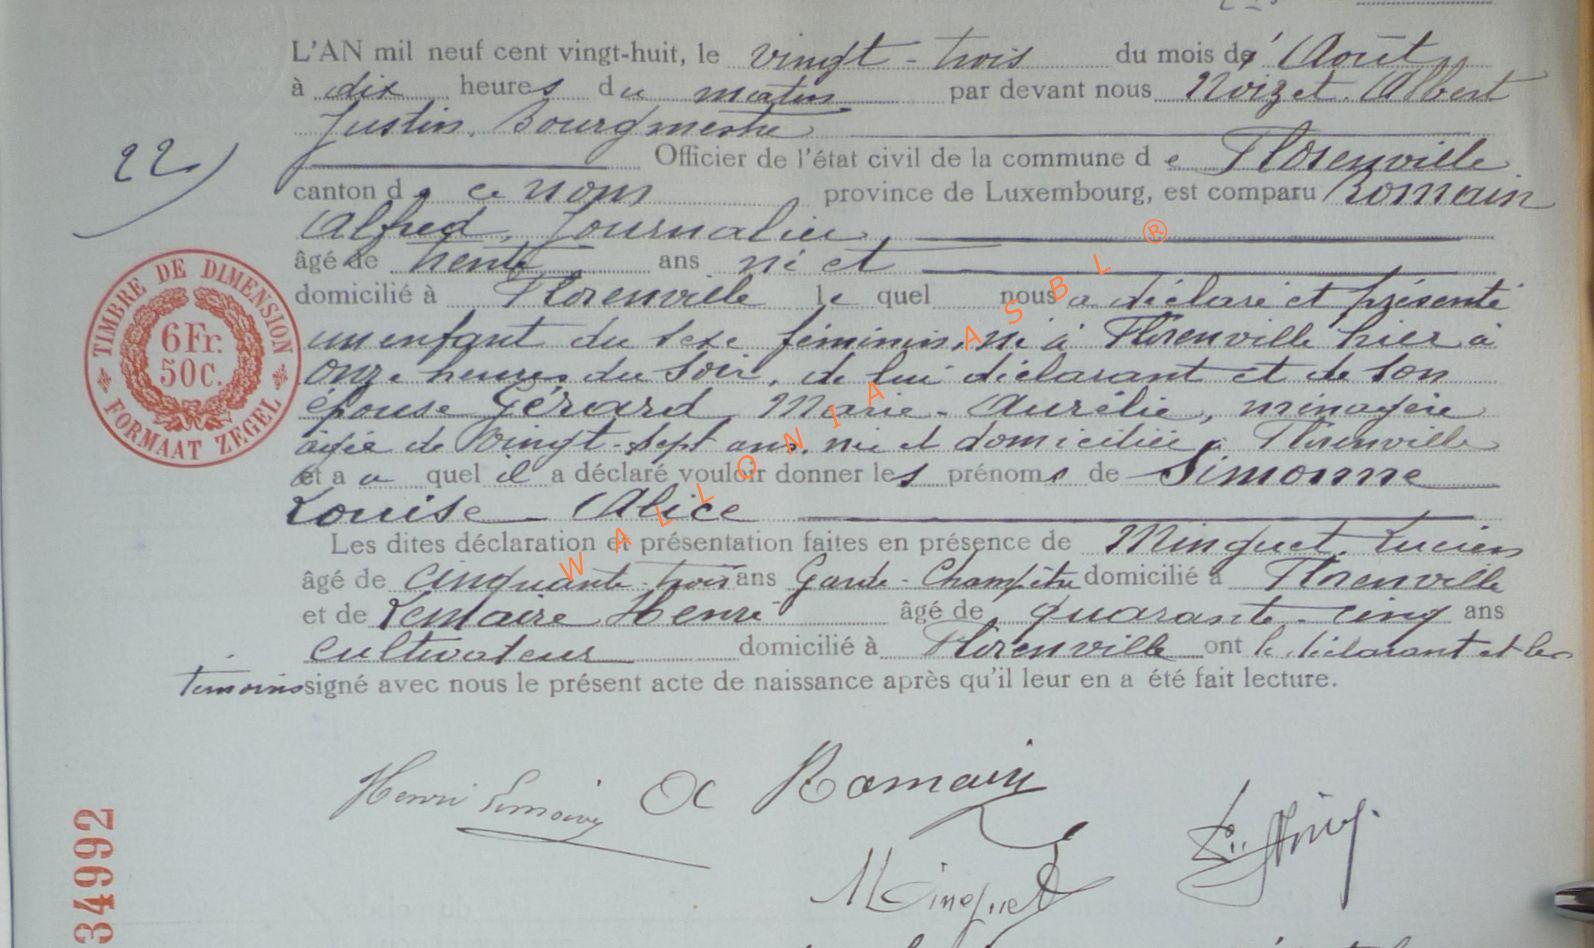 L'AN mil neuf cent vingt-huit, le vingt-trois du mois de Août
à dix heures du matin par devant nous Noizet Albert
Justin, Bourgmestre
22) Officier de l'état civil de la commune de Florenville
canton de ce nom province de Luxembourg, est comparu Romain
Alfred, Journalier
âgé de trente ans né et
domicilié à Florenville lequel nous a déclaré et présenté
un enfant du sexe féminin, né à Florenville hier à
onze heures du soir, de lui déclarant et de son
épouse Gérard, Marie-Aurélie, ménagère
âgée de vingt-sept ans, née et domiciliée à Florenville
et au quel il a déclaré vouloir donner les prénoms de Simonne
Louise Alice
Les dites déclaration et présentation faites en présence de Minguet, Lucien
âgé de cinquante-trois ans Garde-Champêtre domicilié à Florenville
et de Lemaire Henri âgé de quarante-cinq ans
cultivateur domicilié à Florenville ont le déclarant et les
témoins signé avec nous le présent acte de naissance après qu'il leur en a été fait lecture.
TIMBRE DE DIMENSION
6Fr.
50C.
FORMAAT ZEGEL
WALLONIA ASBL ®
Henri Romain
Minguet
34992